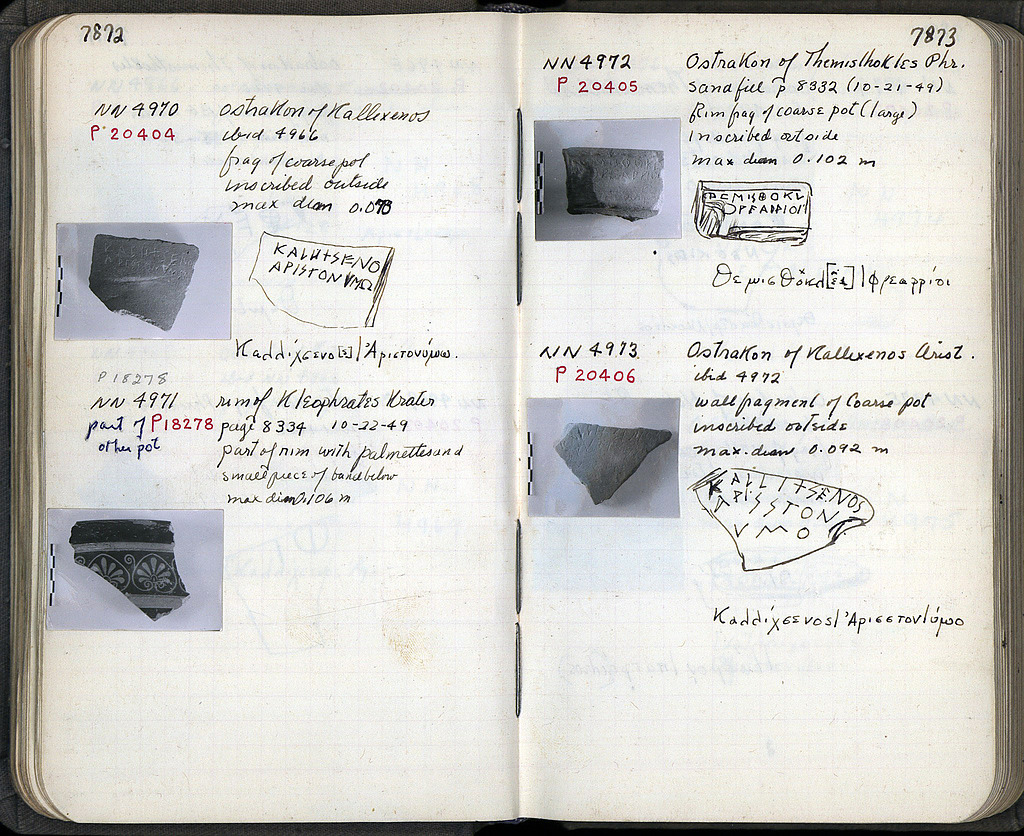 7872
NN 4970 Ostrakon of Kallixenos
P 20404 ibid 4966
frag of coarse pot
inscribed outside
max diam 0.078
ΚΑLΙ+SΕΝΟ
ΑΡΙSΤΟΝVΜΩ
Καλλίχσενο[ς] | Ἀριστονύμω.
P 18278
NN 4971 rim of Kleophrates Krater
part of P18278 page 8334 10-22-49
other pot part of rim with palmettes and
small piece of band below
max diam 0.106 m
7873
NN 4972 Ostrakon of Themisthokles Phr.
P 20405 sand fill p 8332 (10-21-49)
Rim frag of coarse pot (large)
Inscribed outside
max diam 0.102 m
ΕΜΙSΘΟΚL
ΡΕΑΡΡΙΟΙ
NN 4973 Ostrakon of Kallixenos Arist.
P 20406 ibid 4972
wall fragment of Coarse pot
inscribed outside
max. diam 0.092 m
ΚΑLLΙ+SΕΝΟS
ΑΡΙSSΤΟΝ
VΜΟ
Καλλίχσενος | Ἀρισστον|ύμο